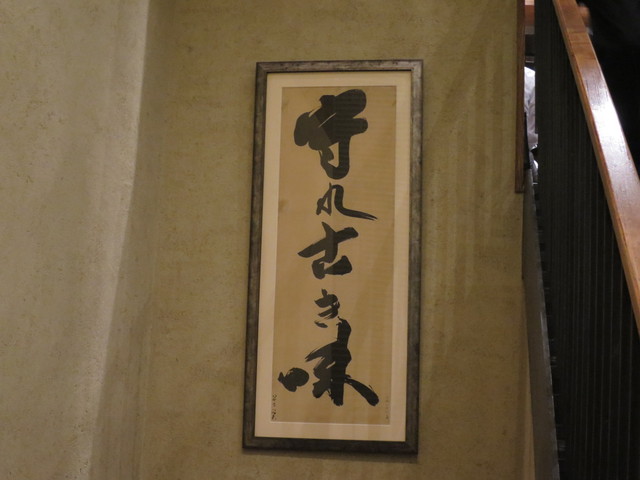 守れ古き味